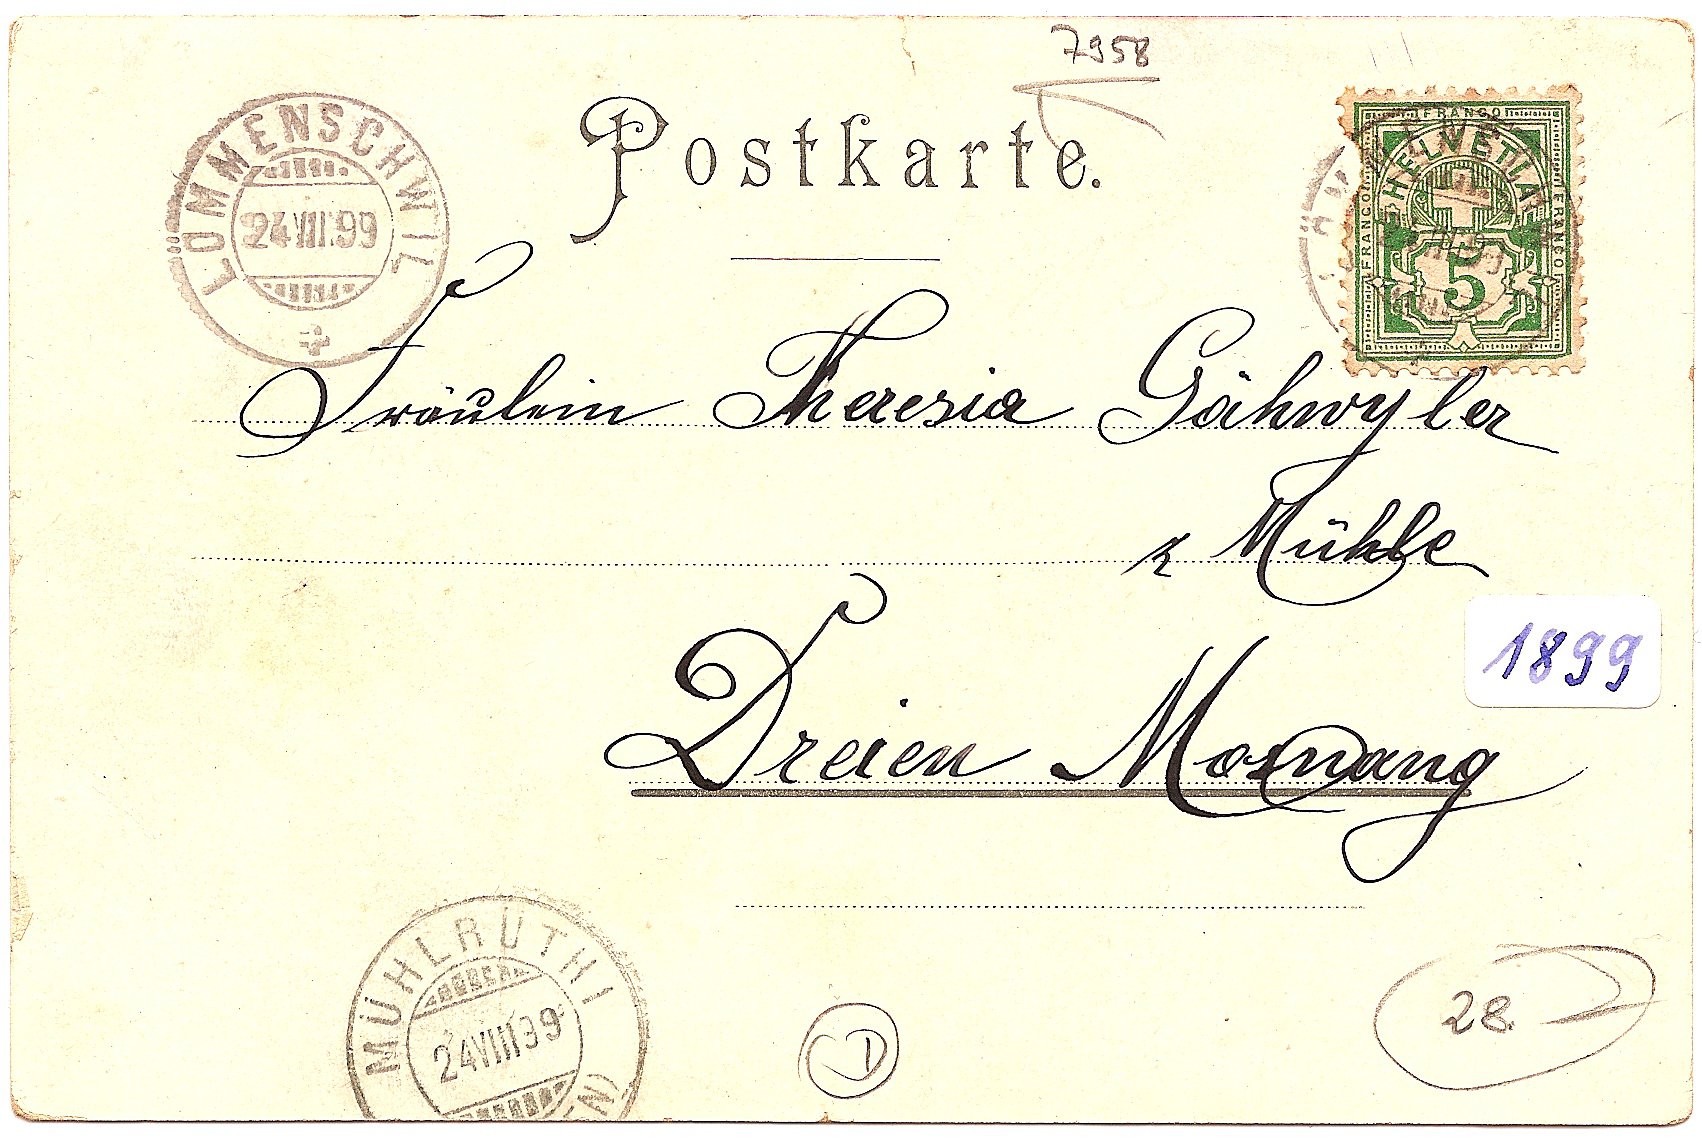 7958
Postkarte.
LÖMMENSCHWIL
24.VIII.99
FRANCO
HELVETIA
FRANCO
FRANCO
5
Fräulein Theresia Gähwyler
z Mühle
Dreien Mosnang
1899
MÜHLRÜTHI
24.VIII.99
D
28.